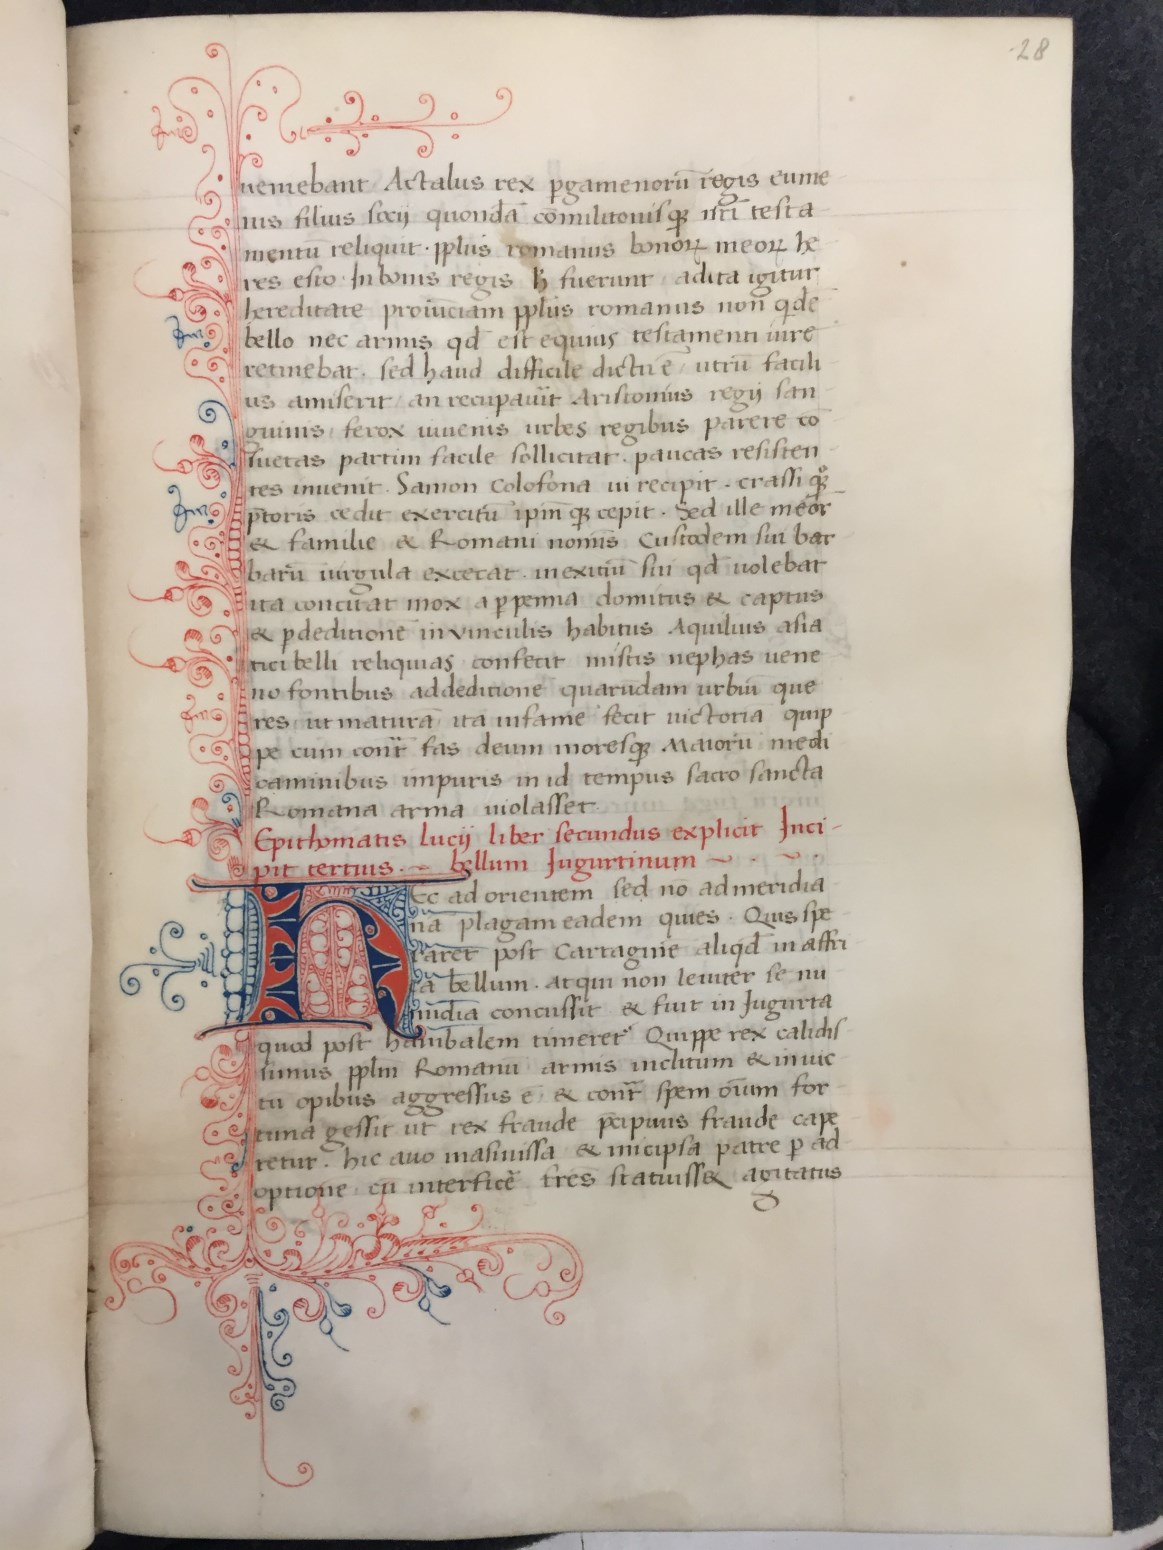 28
ueniebant Actalus rex pgamenorū regis eume
nis filius socij quondā cōmilitonisqꝫ nri testa
mentū reliquit · pplūs romanus bonoꝝ meoꝝ he
res esto · In bonis regis h̄ fuerunt adita igitur
hereditate prouīciam pplūs romanus non qdē
bello nec armis qd̄ est equius testamenti iure
retinebat · sed haud difficile dictū ē / utrū facili
us amiserit / an recupauit̄ Aristonius regij san
guinis ferox iuuenis urbes regibus parere cō
suetas partim facile sollicitat · paucas resisten
tes inuenit · Samon Colofona ui recipit · crassi qꝫ
p̄toris cedit exercitū ipm̄ qꝫ cepit · Sed ille meor̄
& familie & Romani nominis Custodem sui bar
barū uirgula excecat · in exitiū sui qd̄ uolebat
ita concitat mox a ꝑpenna domitus & captus
& p deditionē in vinculis habitus Aquilius asia
tici belli reliquias confecit mistis nephas uene
no fontibus ad deditionē quarūdam urbiū que
res ut maturā ita infamē fecit uictoriā quip
pe cum contr̄ fas deum moresqꝫ Maiorū medi
caminibus impuris in id tempus sacro sancta
Romana arma uiolasset ·
Epithomatis lucij liber secundus explicit Inci-
pit tertius · ~ bellum Jugurtinum ~ · ~ ·
Hec ad orientem sed nō ad meridia
nā plagam eadem quies · Quis spe
raret post Cartaginē aliqd̄ in affri
cā bellum · atqui non leuiter se nu
midia concussit & fuit in Jugurta
quod post hanibalem timeret Quippe rex calidis
simus pplm̄ Romanū armis inclitum & inuic
tū opibus aggressus ē & contr̄ spem oīum for
tuna gessit ut rex fraude p̄cipuus fraude cape
retur · hic auo masinissa & micipsa patre ꝑ ad
optionē cū interficē fres̄ statuiss& agitatus